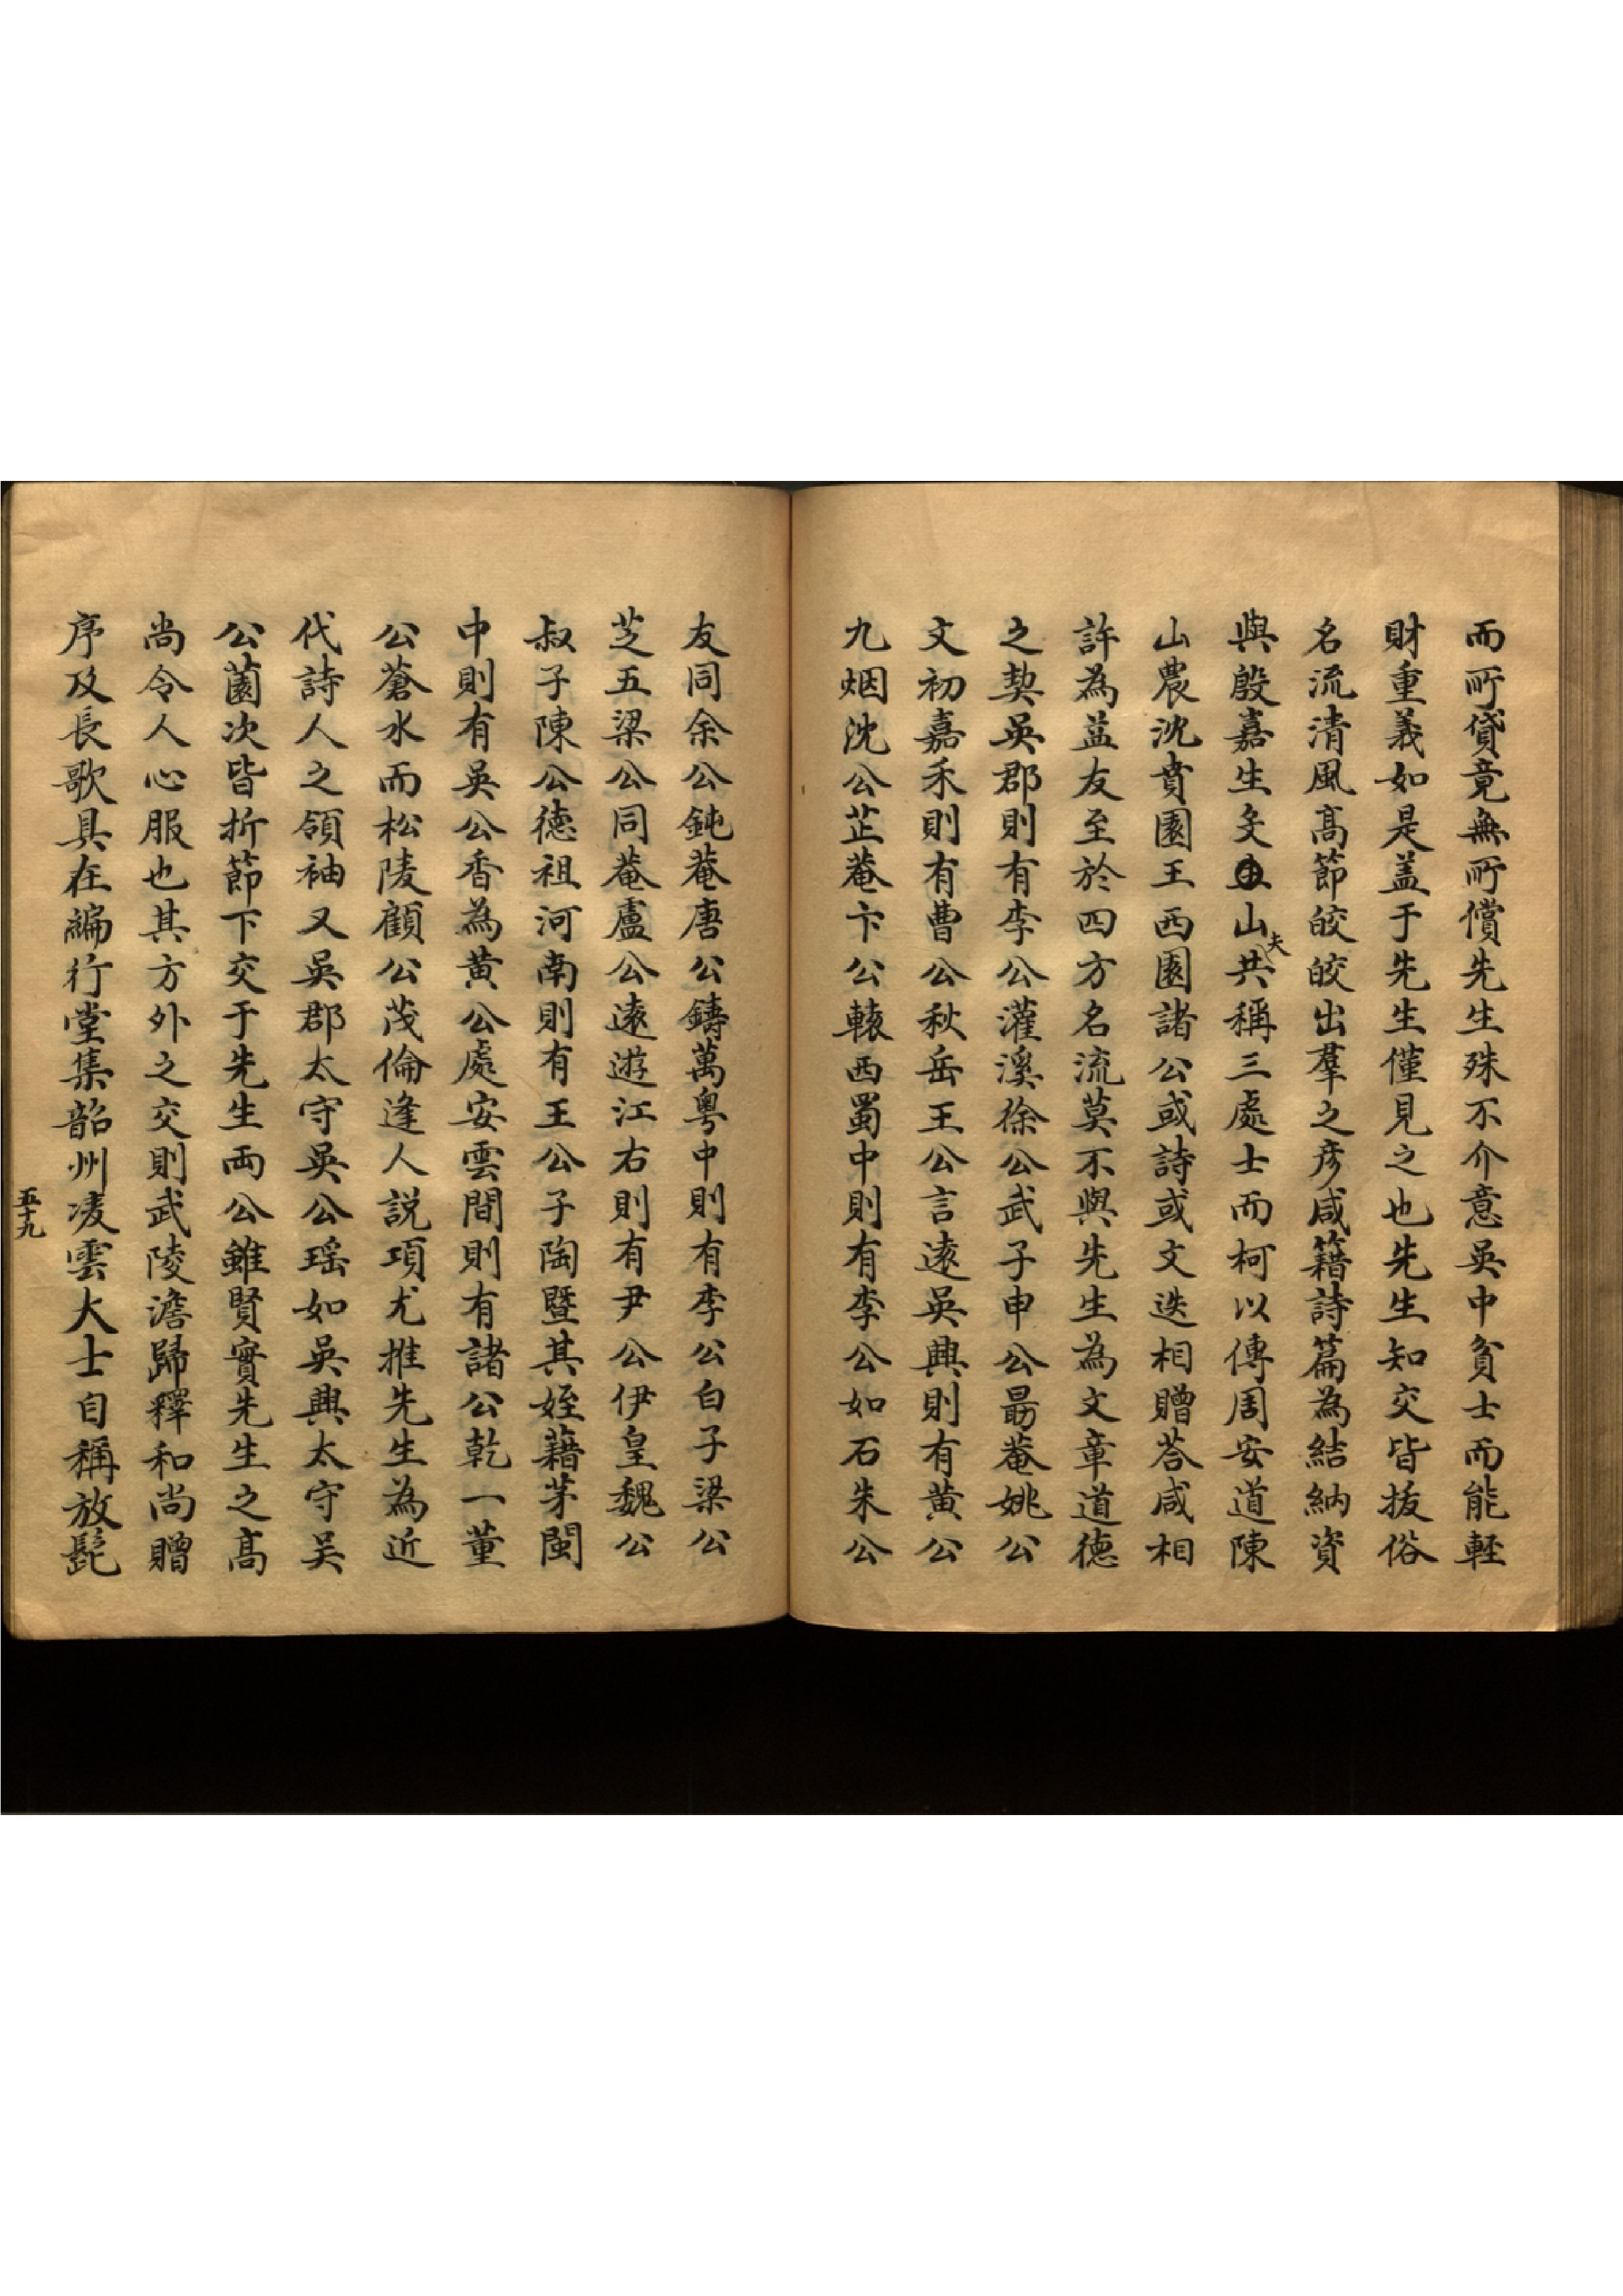 而所貸竟無所償先生殊不介意吳中貧士而能輕
財重義如是盖于先生僅見之也先生知交皆拔俗
名流清風高節皎皎出羣之彥咸籍詩篇為結納資
與殷嘉生文山夫共稱三處士而柯以傳周安道陳
山農沈賁園王西園諸公或詩或文迭相贈荅咸相
許為益友至於四方名流莫不與先生為文章道德
之契吳郡則有李公灌溪徐公武子申公勗菴姚公
文初嘉禾則有曹公秋岳王公言遠吳興則有黃公
九烟沈公芷菴卞公轅西蜀中則有李公如石朱公
友同余公鈍菴唐公鑄萬粵中則有李公白子梁公
芝五梁公同菴盧公遠遊江右則有尹公伊皇魏公
叔子陳公德祖河南則有王公子陶暨其姪藉茅閩
中則有吳公香為黃公處安雲間則有諸公乾一董
公蒼水而松陵顧公茂倫逢人説項尤推先生為近
代詩人之領袖又吳郡太守吳公瑶如吳興太守吴
公薗次皆折節下交于先生両公雖賢實先生之高
尚令人心服也其方外之交則武陵澹歸釋和尚贈
序及長歌具在編行堂集韶州凌雲大士自稱放髡
五十九